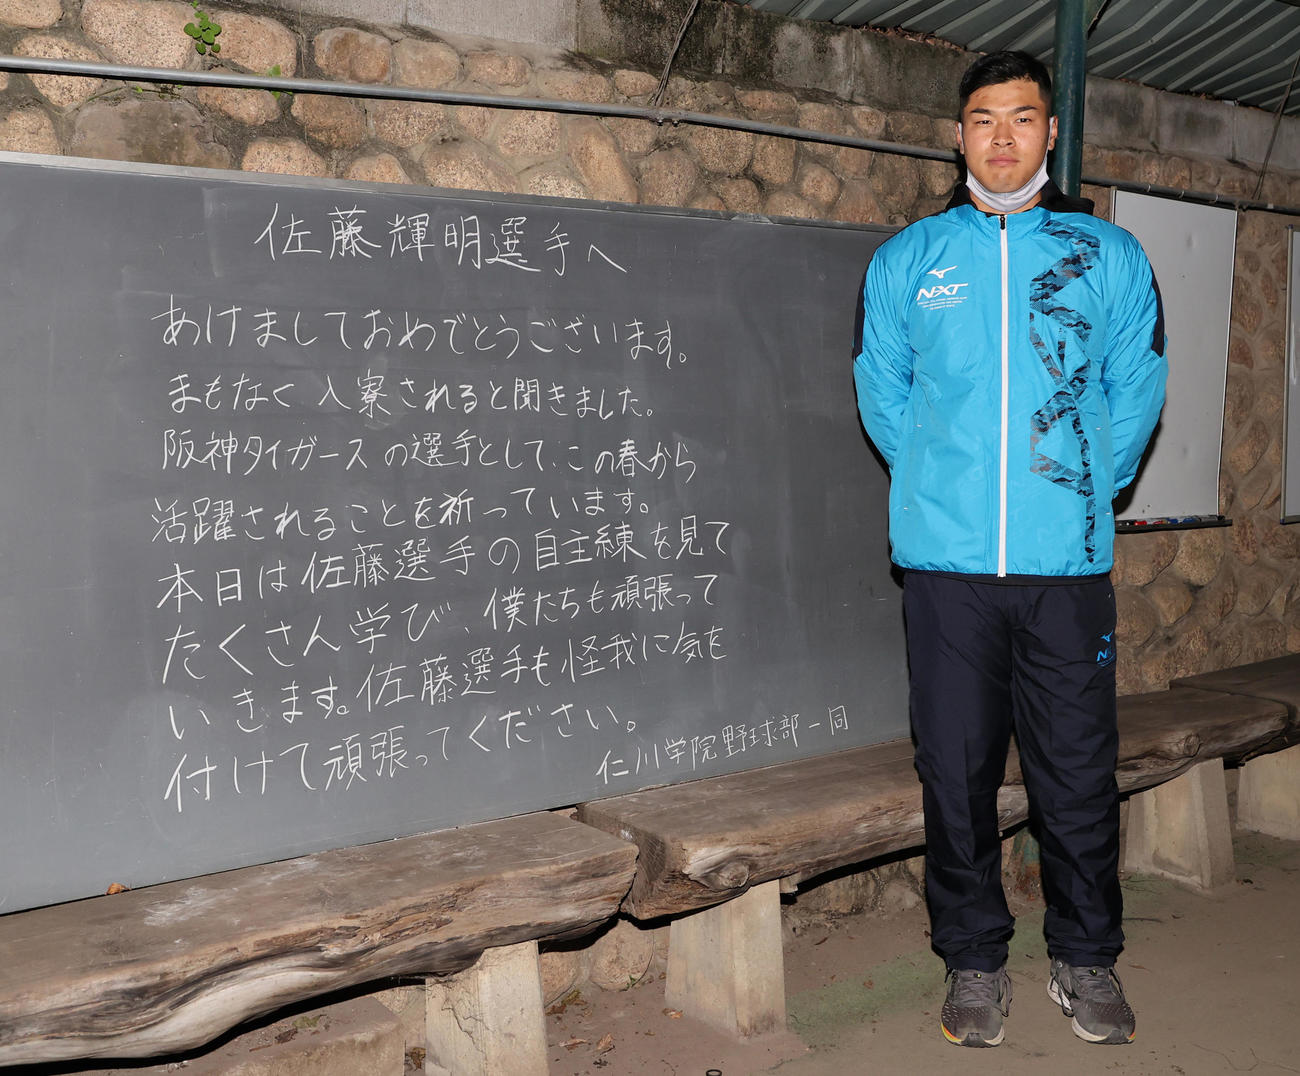 佐藤輝明選手へ
あけましておめでとうございます。
まもなく入寮されると聞きました。
阪神タイガースの選手として、この春から
活躍されることを祈っています。
本日は佐藤選手の自主練を見て
たくさん学び、僕たちも頑張って
いきます。佐藤選手も怪我に気を
付けて頑張ってください。
仁川学院野球部一同
NXT